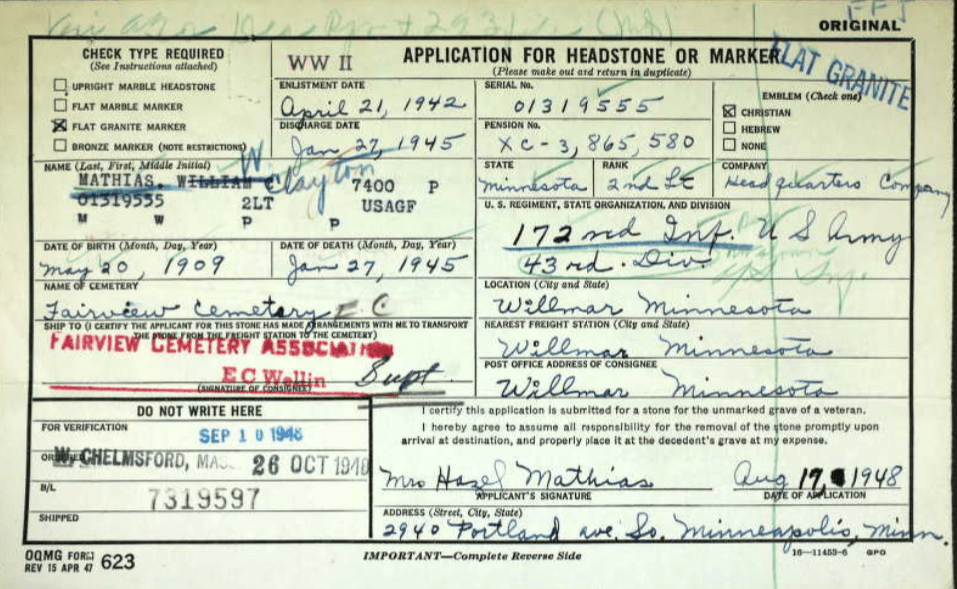 ORIGINAL
CHECK TYPE REQUIRED
(See Instructions attached)
UPRIGHT MARBLE HEADSTONE
FLAT MARBLE MARKER
FLAT GRANITE MARKER
BRONZE MARKER (NOTE RESTRICTIONS)
WW II
APPLICATION FOR HEADSTONE OR MARKER
(Please make out and return in duplicate)
FLAT GRANITE
ENLISTMENT DATE
April 21, 1942
DISCHARGE DATE
Jan 27, 1945
SERIAL No.
01319555
PENSION No.
XC-3,865,580
EMBLEM (Check one)
CHRISTIAN
HEBREW
NONE
NAME (Last, First, Middle Initial)
MATHIAS. WILLIAM C W Clayton 7400 P
01319555 2LT USAGF
M W P P
STATE
Minnesota
RANK
2nd Lt
COMPANY
Headquarters Company
U. S. REGIMENT, STATE ORGANIZATION, AND DIVISION
172nd Inf. U S Army
43rd. Div.
DATE OF BIRTH (Month, Day, Year)
May 20, 1909
DATE OF DEATH (Month, Day, Year)
Jan 27, 1945
NAME OF CEMETERY
Fairview Cemetery E C
LOCATION (City and State)
Willmar Minnesota
SHIP TO (I CERTIFY THE APPLICANT FOR THIS STONE HAS MADE ARRANGEMENTS WITH ME TO TRANSPORT
THE STONE FROM THE FREIGHT STATION TO THE CEMETERY)
FAIRVIEW CEMETERY ASSOCIATION
E C Wellin Supt.
(SIGNATURE OF CONSIGNEE)
NEAREST FREIGHT STATION (City and State)
Willmar Minnesota
POST OFFICE ADDRESS OF CONSIGNEE
Willmar Minnesota
DO NOT WRITE HERE
FOR VERIFICATION
SEP 10 1948
ORDERED
W. CHELMSFORD, MASS. 26 OCT 1948
B/L
7319597
SHIPPED
I certify this application is submitted for a stone for the unmarked grave of a veteran.
I hereby agree to assume all responsibility for the removal of the stone promptly upon
arrival at destination, and properly place it at the decedent's grave at my expense.
Mrs Hazel Mathias Aug 17, 1948
APPLICANT'S SIGNATURE DATE OF APPLICATION
ADDRESS (Street, City, State)
2940 Portland ave. So. Minneapolis, Minn.
OQMG FORM 623
REV 15 APR 47
IMPORTANT—Complete Reverse Side
16—11453-6 GPO